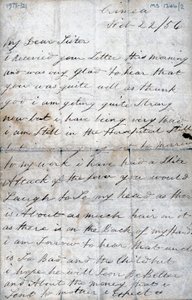 1978-121
MS 1246/2
Crimea
Feb 22/56
My Dear Sister
i received your Letter this morning
and was very glad to hear that
you was quite well as thank
God i am geting quite Strong
now but i have being very bad
i am Still in the Hospital
to my work i have had a
Attack of the you would
Laugh to my head as there
is About as much hair on it
as there is on the Back of my hand
i am Sorrow to hear that
is So Bad and the Child but
i hope he will Soon be Better
and About the money that i
Sent to mother i Expect